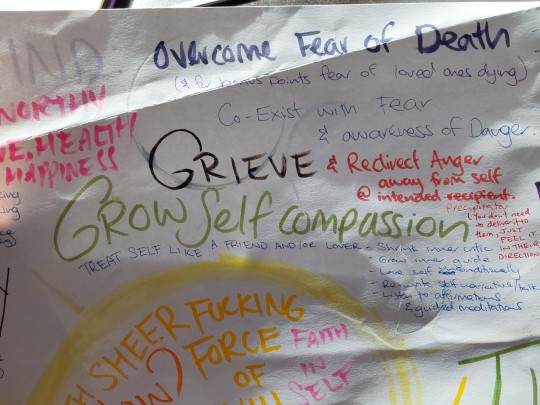 Overcome Fear of Death
(& for bonus points fear of loved ones dying)
IND
WORTHY
VE, HEALTH
HAPPINESS
Co-Exist with Fear
& awareness of Danger
GRIEVE & Redirect Anger
away from self
@ intended recipient.
precipitator
(You don't need
to deliver it to
them, JUST
FEEL IT
IN THEIR
DIRECTION
GROW Self compassion
TREAT SELF LIKE A FRIEND AND/OR LOVER
- Shrink inner critic
- Grow inner guide
- Love self unconditionally
- Rewrite self narrative/talk
- Listen to affirmations
& guided meditations
SHEER FUCKING
FORCE
OF
FAITH
IN
SELF